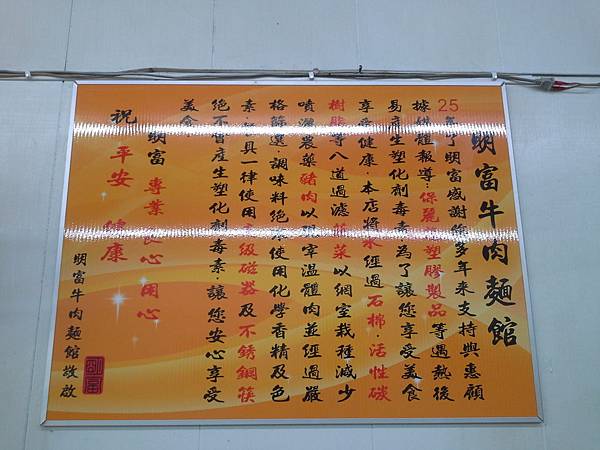 明富牛肉麵館
25年了明富感謝您多年來支持與惠顧
據媒體報導:保麗 塑膠製品等遇熱後
易產生塑化劑毒素為了讓您享受美食
享受健康.本店將水經過石棉活性碳
樹脂等八道過濾蔬菜以網室栽種減少
噴灑農藥豬肉以現宰溫體肉並經過嚴
格篩選.調味料絕不使用化學香精及色
素. 具一律使用高級磁器及不銹鋼筷
絕不會產生塑化劑毒素.讓您安心享受
美食
明富 專業良心用心
祝 平安 健康
明富牛肉麵館敬啟